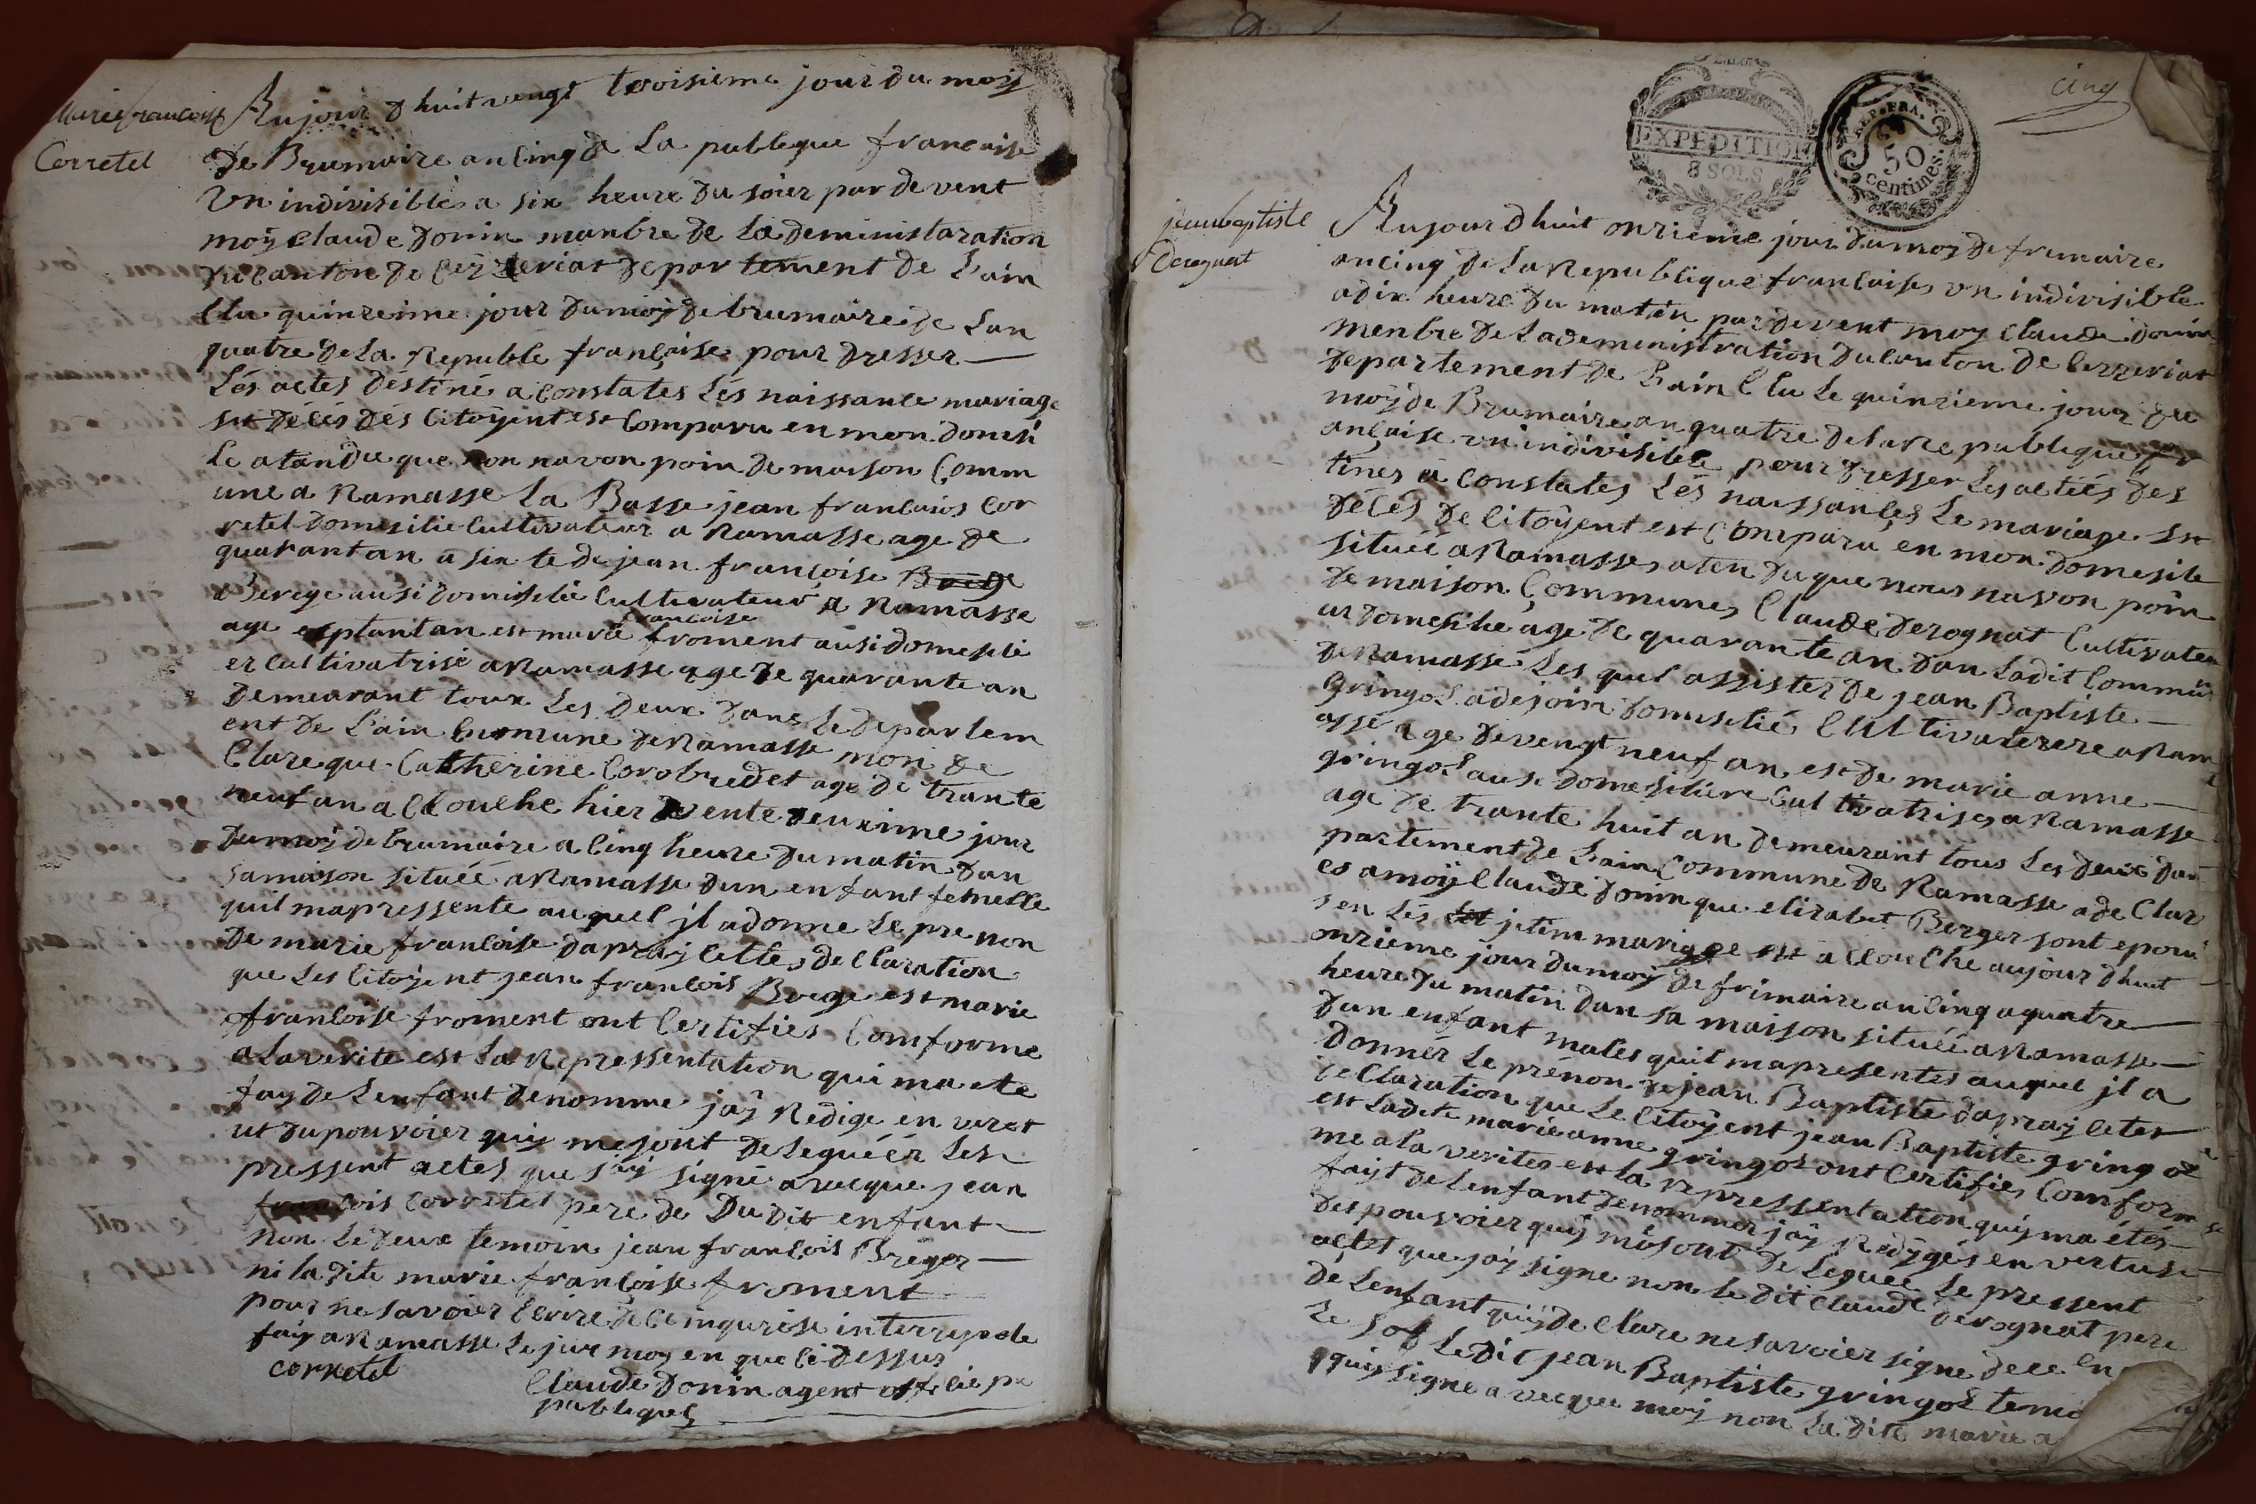 Marie francoise
Corretel
Aujour d huit vengt troisieme jour du mois
de Brumaire an cinq d La publeque francaise
un indivisible a six heure du soier par devent
moÿ claude donin manbre de la deministaration
du canton de Ceyzeriat departement de L'ain
Elu quinzeime jour du moÿ de brumaire de Lan
quatre de La Republe française pour dresser
Lés actes déstiné a constates Lés naissance mariage
est décés dés Citoÿint est Comparu en mon domesi
Le atandu que non navon poin de maison Comm
une a Ramasse La Basse jean francaios Cor
retel domesilie Cultivateur a Ramasse age de
quarant an a siste de jean françoise
Berege ausi domisilié Cultivateur a Ramasse
age septantan est marie francoise froment ausi domesilié
et Cultivatrise a Ramasse age de quarante an
demeurant toux Les deux dans Le departem
ent de L'ain Commune de Ramasse mon de
Clare que Catherine Corobredet age de trante
neuf an a ccouche hier vente deuxime jour
du moÿ de brumaire a cinq heure du matin dan
sa maison située a Ramasse dun enfant femelle
quil mapressente auquel jl adonne Le prenon
de marie francoise dapraÿ cette declaration
que Les Citoÿent jean francois Brege est marie
francoise froment ont Certifies Comforme
a La verite est La Repressentation qui ma ete
fay de Lenfant denomme jaÿ Redige en veret
ut du pouvoier quiy me sont Deleguéér Les
pressent actes que jaÿ signé avecque jean
francois Corretel pere de Dudit enfant
non Le deux temoin jean francois Breger
ni la dite marie françoise froment
pour ne savoier Ecrire de ce inqurise interrpede
fay a Ramasse Le jur moy en que ci dessus
corretel
Claude Donin agent officie pu
publeque
cinq
EXPEDITION
8 SOLS
REP. FRA.
50
centimes
jean baptiste
Derognat
Aujour d huit onzieme jour du moy de frimaire
an cinq de La Republique francaise un indivisible
a dix heure du matin par devent moy claude donin
menbre de La deministration du Canton de Ceyzeriat
departement de L'ain Elu Le quinzieme jour du
moÿ de Brumaire an quatre de La Republique fr
ançaise un indivisible pour dresser Les actiés des
tines a Constates Lés naissances Le mariage est
décés de Citoÿent est Comparu en mon domesile
située a Ramasse aten du que nous navon poin
de maison Commune Claude derognat Cultivateu
ur domesilie age de quarante an dan Ladit Commun
de Ramasse Les quel assister de jean Baptiste
Gringoz adejoin domisilié Cultivaterere a Ram
assé age de vengt neuf an est de marie anne
gringoz ausi domesiliere Cultivatrise a Ramasse
age de trante huit an demeurant tous Les deux dan
partement de L'ain Commune de Ramasse a de Clar
es a moÿ Claude donin que elizabet Berger sont epous
s en Lés jitim mariage est a ccouche aujour dhuit
onzieme jour du moÿ de frimaire an cinq a quatre
heure du matin dan sa maison située a Ramasse
dun enfant males quil mapresentes auquel jl a
donner Le prénon de jean Baptiste dapraÿ cetes
de Claration que Le Citoÿent jean Baptiste gringoz
est Ladite marie anne gringoz ont Certifies Comform
me a la verites est La repressentation quiy ma étés
fayt de Lenfant denommer jaÿ Redÿgés en vertuse
des pouvoier quiy mésont de Leguee Le pressent
actes que jaÿ signe non Le dit Claude derognat pere
de Lenfant quiy de Clare ne savoier signe de ce En
Le dit jean Baptiste gringoz temo
quiy signe avecque moÿ non La dite marie a